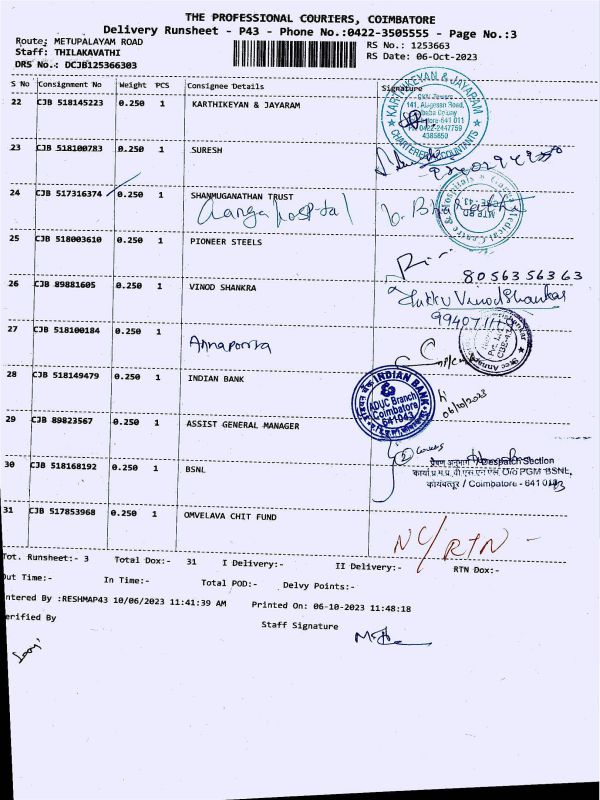 THE PROFESSIONAL COURIERS, COIMBATORE
Delivery Runsheet - P43 - Phone No.:0422-3505555 - Page No.:3
Route: METUPALAYAM ROAD
RS No.: 1253663
Staff: THILAKAVATHI
RS Date: 06-Oct-2023
DRS No.: DCJB125366303
S No Consignment No Weight PCS Consignee Details Signature
22 CJB 518145223 0.250 1 KARTHIKEYAN & JAYARAM
KARTHIKEYAN & JAYARAM
CHARTERED ACCOUNTANTS
23 CJB 518100783 0.250 1 SURESH
24 CJB 517316374 0.250 1 SHANMUGANATHAN TRUST
Ganga hospital
25 CJB 518003610 0.250 1 PIONEER STEELS
8056356363
26 CJB 89881605 0.250 1 VINOD SHANKRA
Vinod Shankar
27 CJB 518100184 0.250 1
Annapoorna
28 CJB 518149479 0.250 1 INDIAN BANK
INDIAN BANK
ADUC Branch
Coimbatore
641043
06/10/2023
29 CJB 89823567 0.250 1 ASSIST GENERAL MANAGER
30 CJB 518168192 0.250 1 BSNL
प्रेषण अनुभाग / Despatch Section
O/o PGM BSNL,
कोयंबत्तूर / Coimbatore - 641 043
31 CJB 517853968 0.250 1 OMVELAVA CHIT FUND
NC/RTN -
Tot. Runsheet:- 3 Total Dox:- 31 I Delivery:- II Delivery:- RTN Dox:-
Out Time:- In Time:- Total POD:- Delvy Points:-
ntered By :RESHMAP43 10/06/2023 11:41:39 AM Printed On: 06-10-2023 11:48:18
erified By Staff Signature